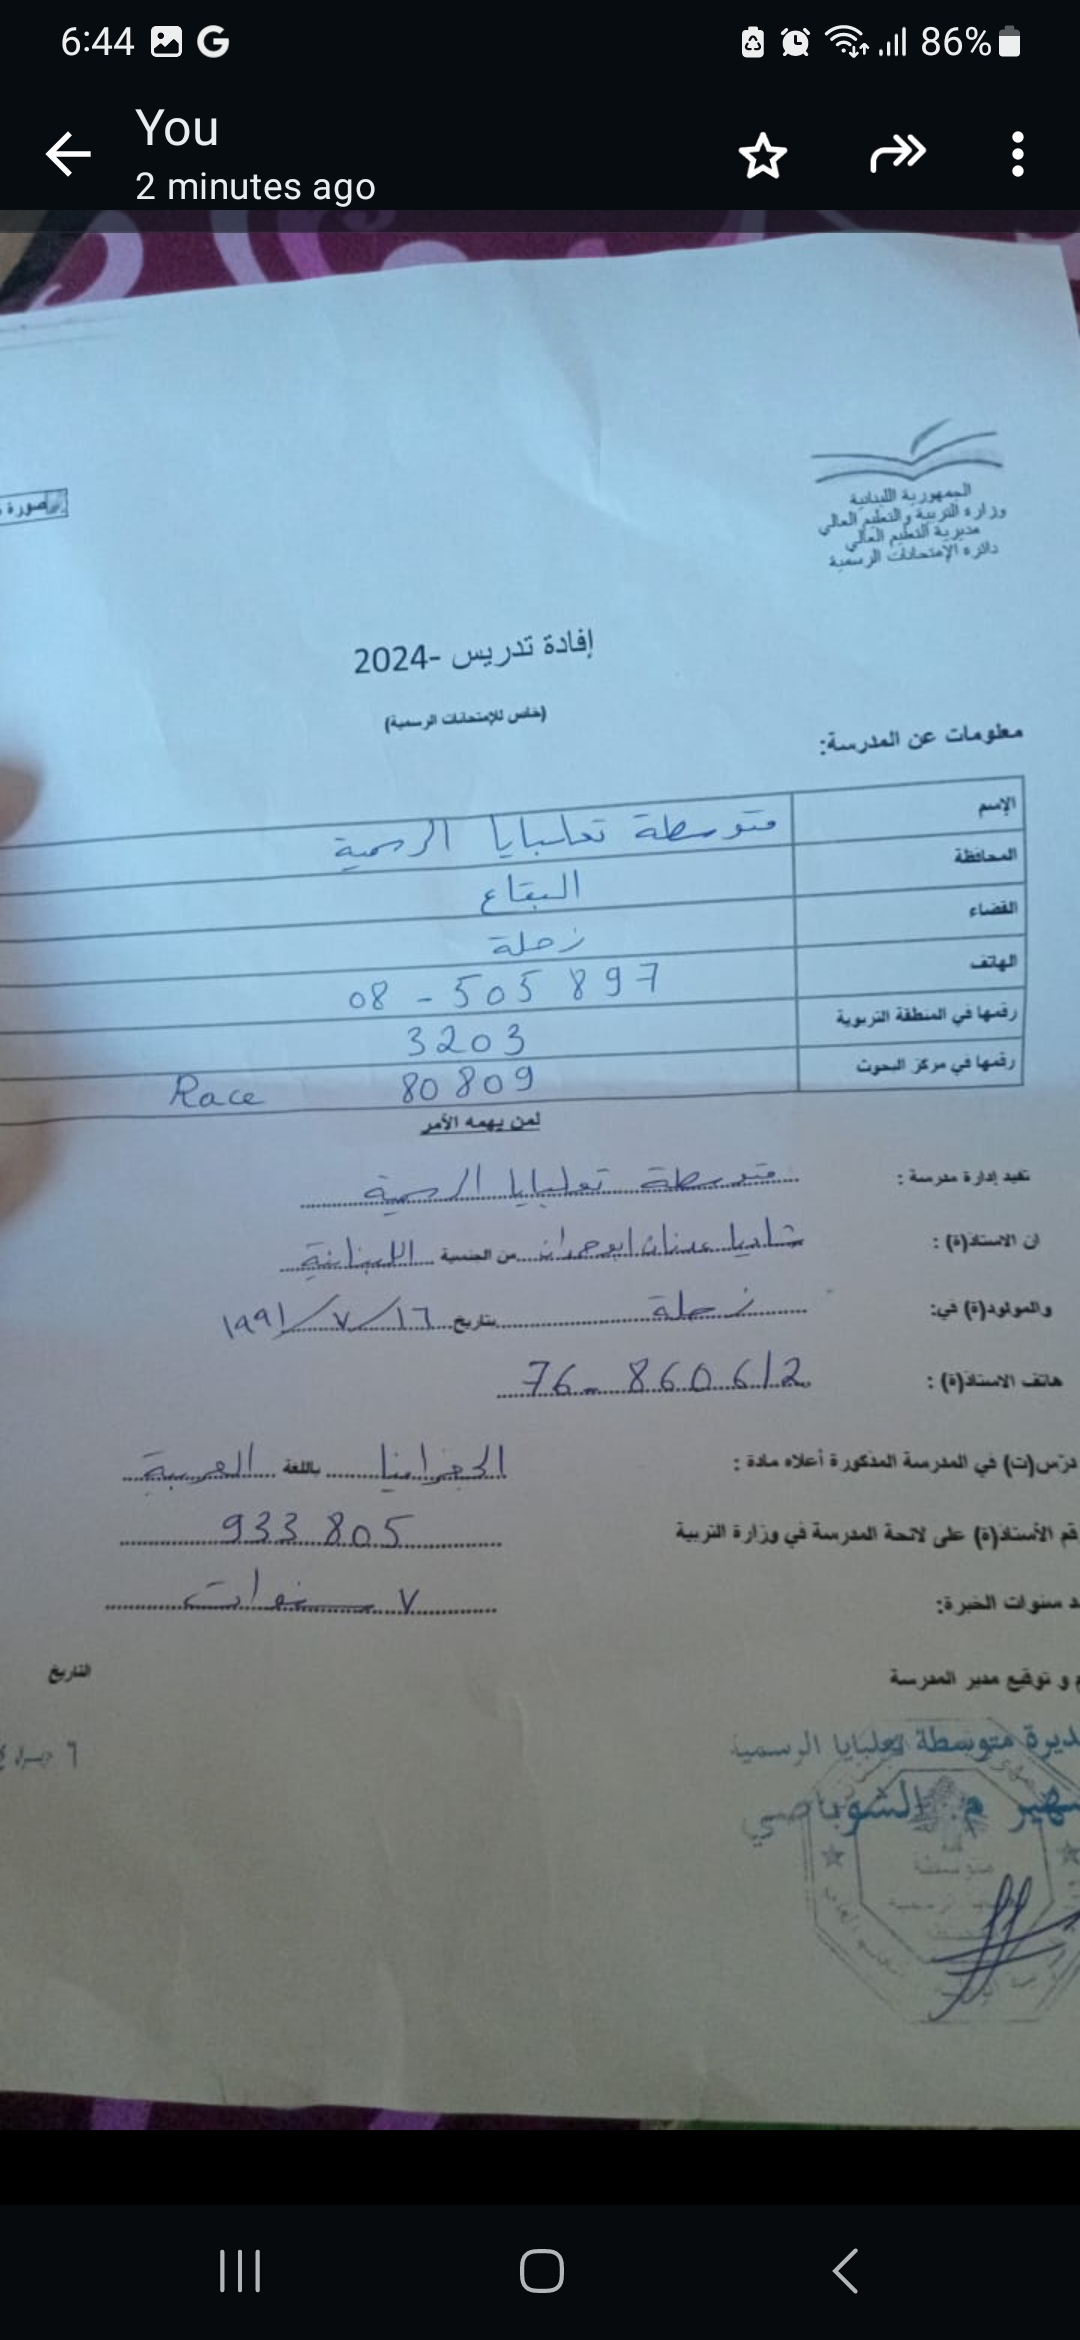 6:44
86%
You
2 minutes ago
الجمهورية اللبنانية
وزارة التربية والتعليم العالي
مديرية التعليم العالي
دائرة الإمتحانات الرسمية
صورة
إفادة تدريس -2024
(خاص للإمتحانات الرسمية)
معلومات عن المدرسة:
الإسم متوسطة تعلبايا الرسمية
المحافظة البقاع
القضاء زحلة
الهاتف 08 - 505 897
رقمها في المنطقة التربوية 3203
رقمها في مركز البحوث 80809 Race
لمن يهمه الأمر
تفيد إدارة مدرسة : متوسطة تعلبايا الرسمية
ان الاستاذ(ة) : شاديا عدنان ابو حمدان من الجنسية اللبنانية
والمولود(ة) في: زحلة بتاريخ ١٦/٧/١٩٩١
هاتف الاستاذ(ة) : 76- 860612
درّس(ت) في المدرسة المذكورة أعلاه مادة : الجغرافيا باللغة العربية
قم الأستاذ(ة) على لائحة المدرسة في وزارة التربية 933805
د سنوات الخبرة: ٧ سنوات
م و توقيع مدير المدرسة التاريخ
ديرة متوسطة تعلبايا الرسمية
هير م. الشوباصي